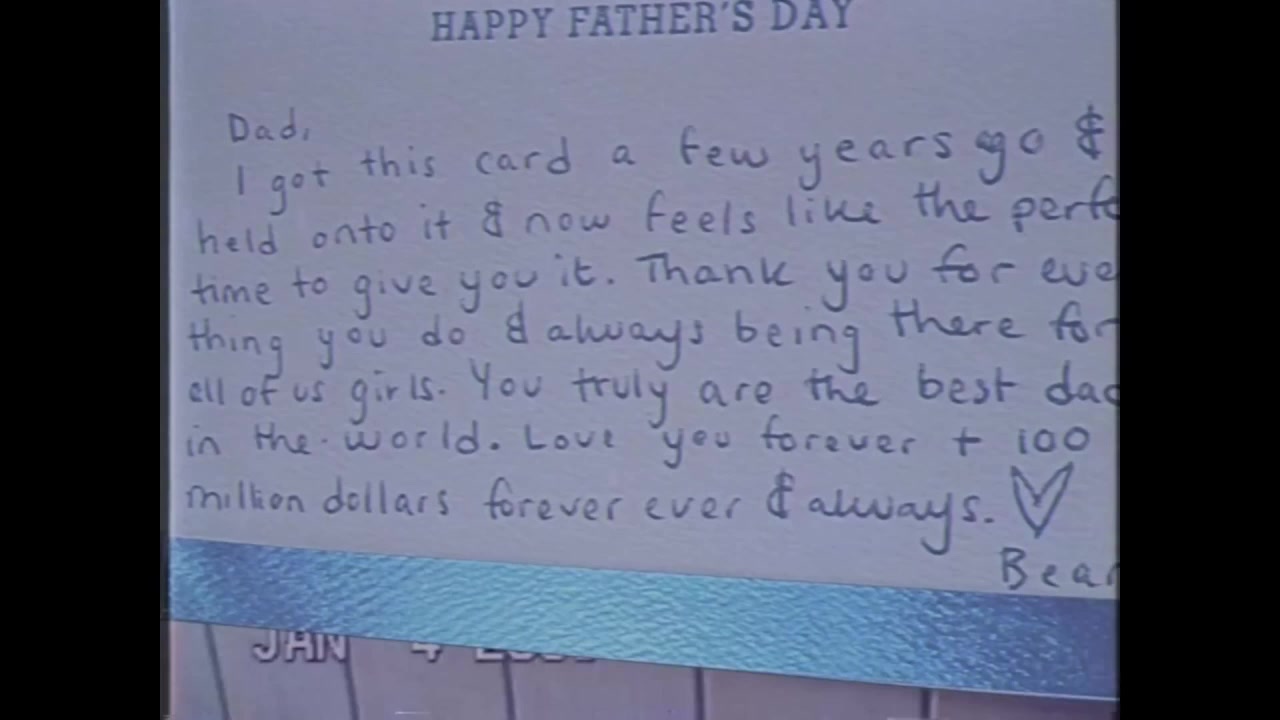 HAPPY FATHER'S DAY
Dad,
I got this card a few years ago &
held onto it & now feels like the perfe
time to give you it. Thank you for eve
thing you do & always being there for
all of us girls. You truly are the best dad
in the world. Love you forever + 100
million dollars forever ever & always.
Bear
JAN 4